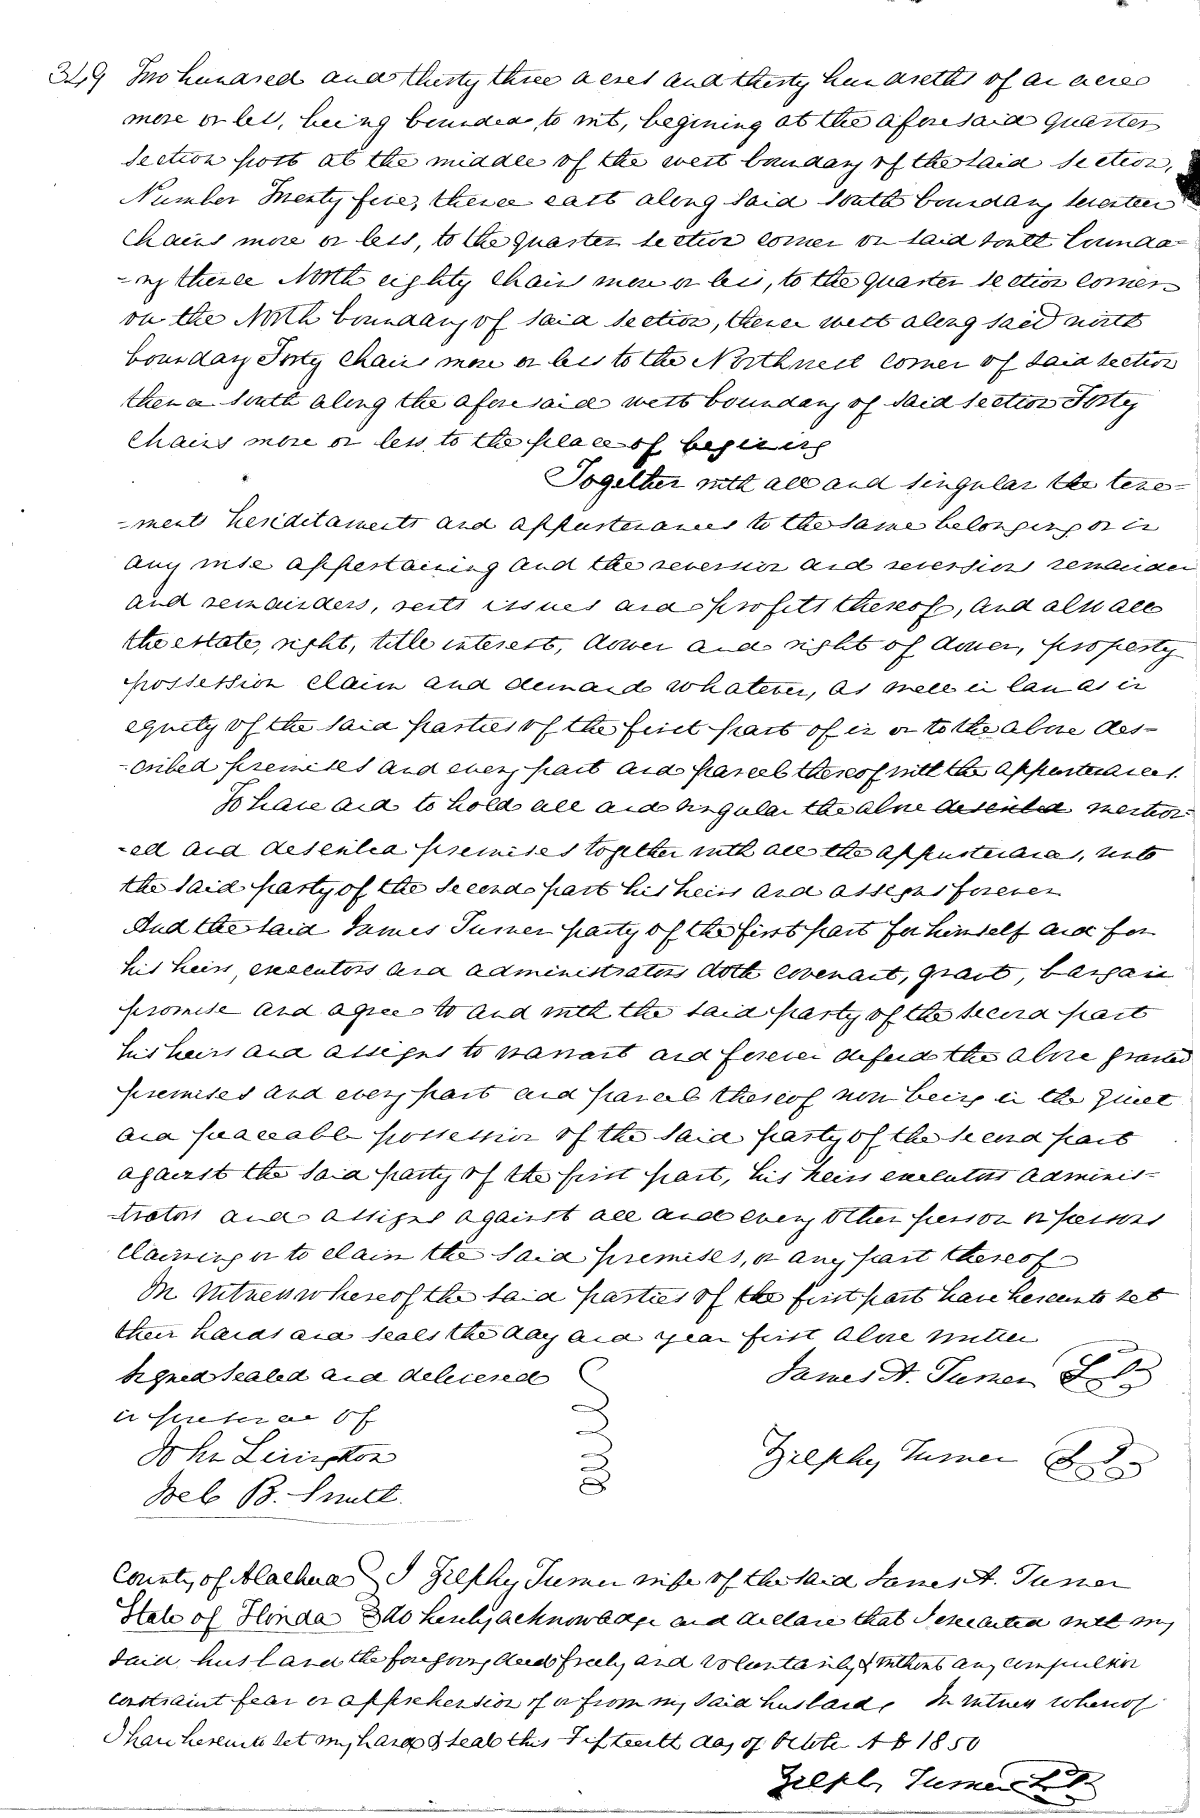 349 Two hundred and thirty three acres and thirty hundreths of an acre
more or les, being bounded, to wit, begining at the aforesaid quarter
section post at the middle of the west boundary of the said section,
Number Twenty five, thence east along said South boundary seventeen
chains more or less, to the quarter section corner on said south bounda-
-ry thence North eighty chains more or less, to the quarter section corner
on the North boundary of said section, thence west along said north
boundary Forty chains more or less to the Northwest corner of said section
thence South along the aforesaid west boundary of said section Forty
chains more or less to the place of begining
Together with all and singular the tene-
-ments hereditaments and appurtenances to the same belonging or in
any wise appertaining and the reversion and reversions remainder
and remainders, rents issues and profits thereof, and also all
the estate, right, title interest, dower and right of dower, property
possession claim and demand whatever, as well in law as in
equity of the said parties of the first part of in or to the above des-
-cribed premises and every part and parcel thereof with the appurtenances.
To have and to hold all and singular the above described mention-
-ed and described premises together with all the appurtenances, unto
the said party of the second part his heirs and assigns forever
And the said James Turner party of the first part for himself and for
his heirs, executors and administrators doth covenant, grant, bargain
promise and agree to and with the said party of the second part
his heirs and assigns to warrant and forever defend the above granted
premises and every part and parcel thereof now being in the quiet
and peaceable possession of the said party of the second part
against the said party of the first part, his heirs executors adminis-
-trators and assigns against all and every other person or persons
claiming or to claim the said premises, or any part thereof
In Witness whereof the said parties of the first part have hereunto set
their hands and seals the day and year first above written
Signed sealed and delivered James A. Turner L S
in presence of
John Livingston Zilphy Turner L S
Web B. Smith.
County of Alachua I Zilphy Turner wife of the said James A. Turner
State of Florida do hereby acknowledge and declare that I executed with my
said husband the foregoing deed freely and voluntarily & without any compulsion
constraint fear or apprehension of or from my said husband, In witness whereof
I have hereunto set my hand & seal this Fifteenth day of Octobr A D 1850
Zilphy Turner L S